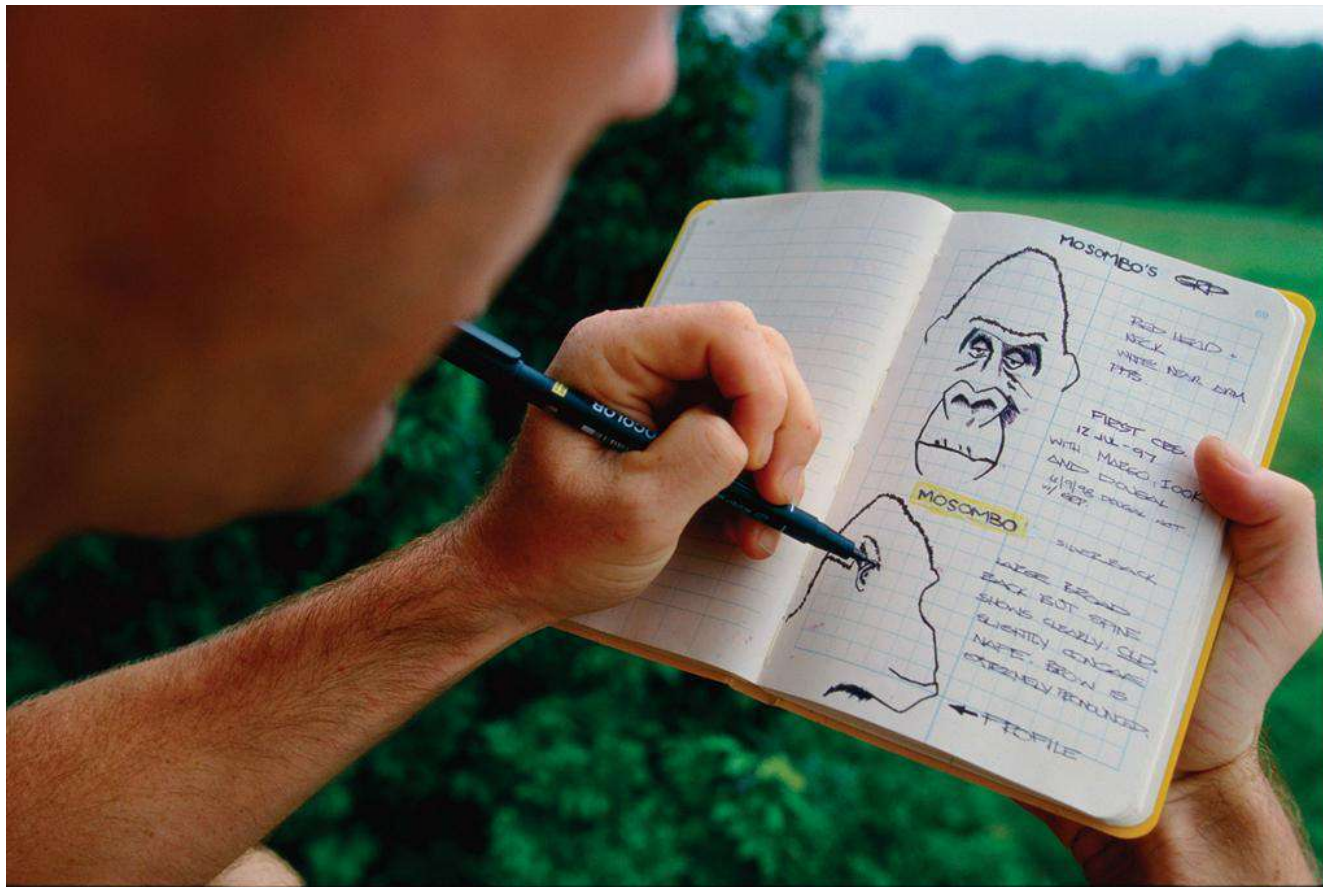 MOSOMBO'S GRP
RED HEAD +
NECK
WHITE NEAR ARM
PITS
FIRST OBS.
12 JUL-97
WITH MARGO, IOOK
AND DOUGAL
DOUGAL NOT
W/ GRP.
MOSOMBO
SILVERBACK
LARGE BROAD
BACK BUT SPINE
SHOWS CLEARLY. OLD.
SLIGHTLY CONCAVE
NAPE. BROW IS
EXTREMELY PRONOUNCED.
← PROFILE
OCOLOR